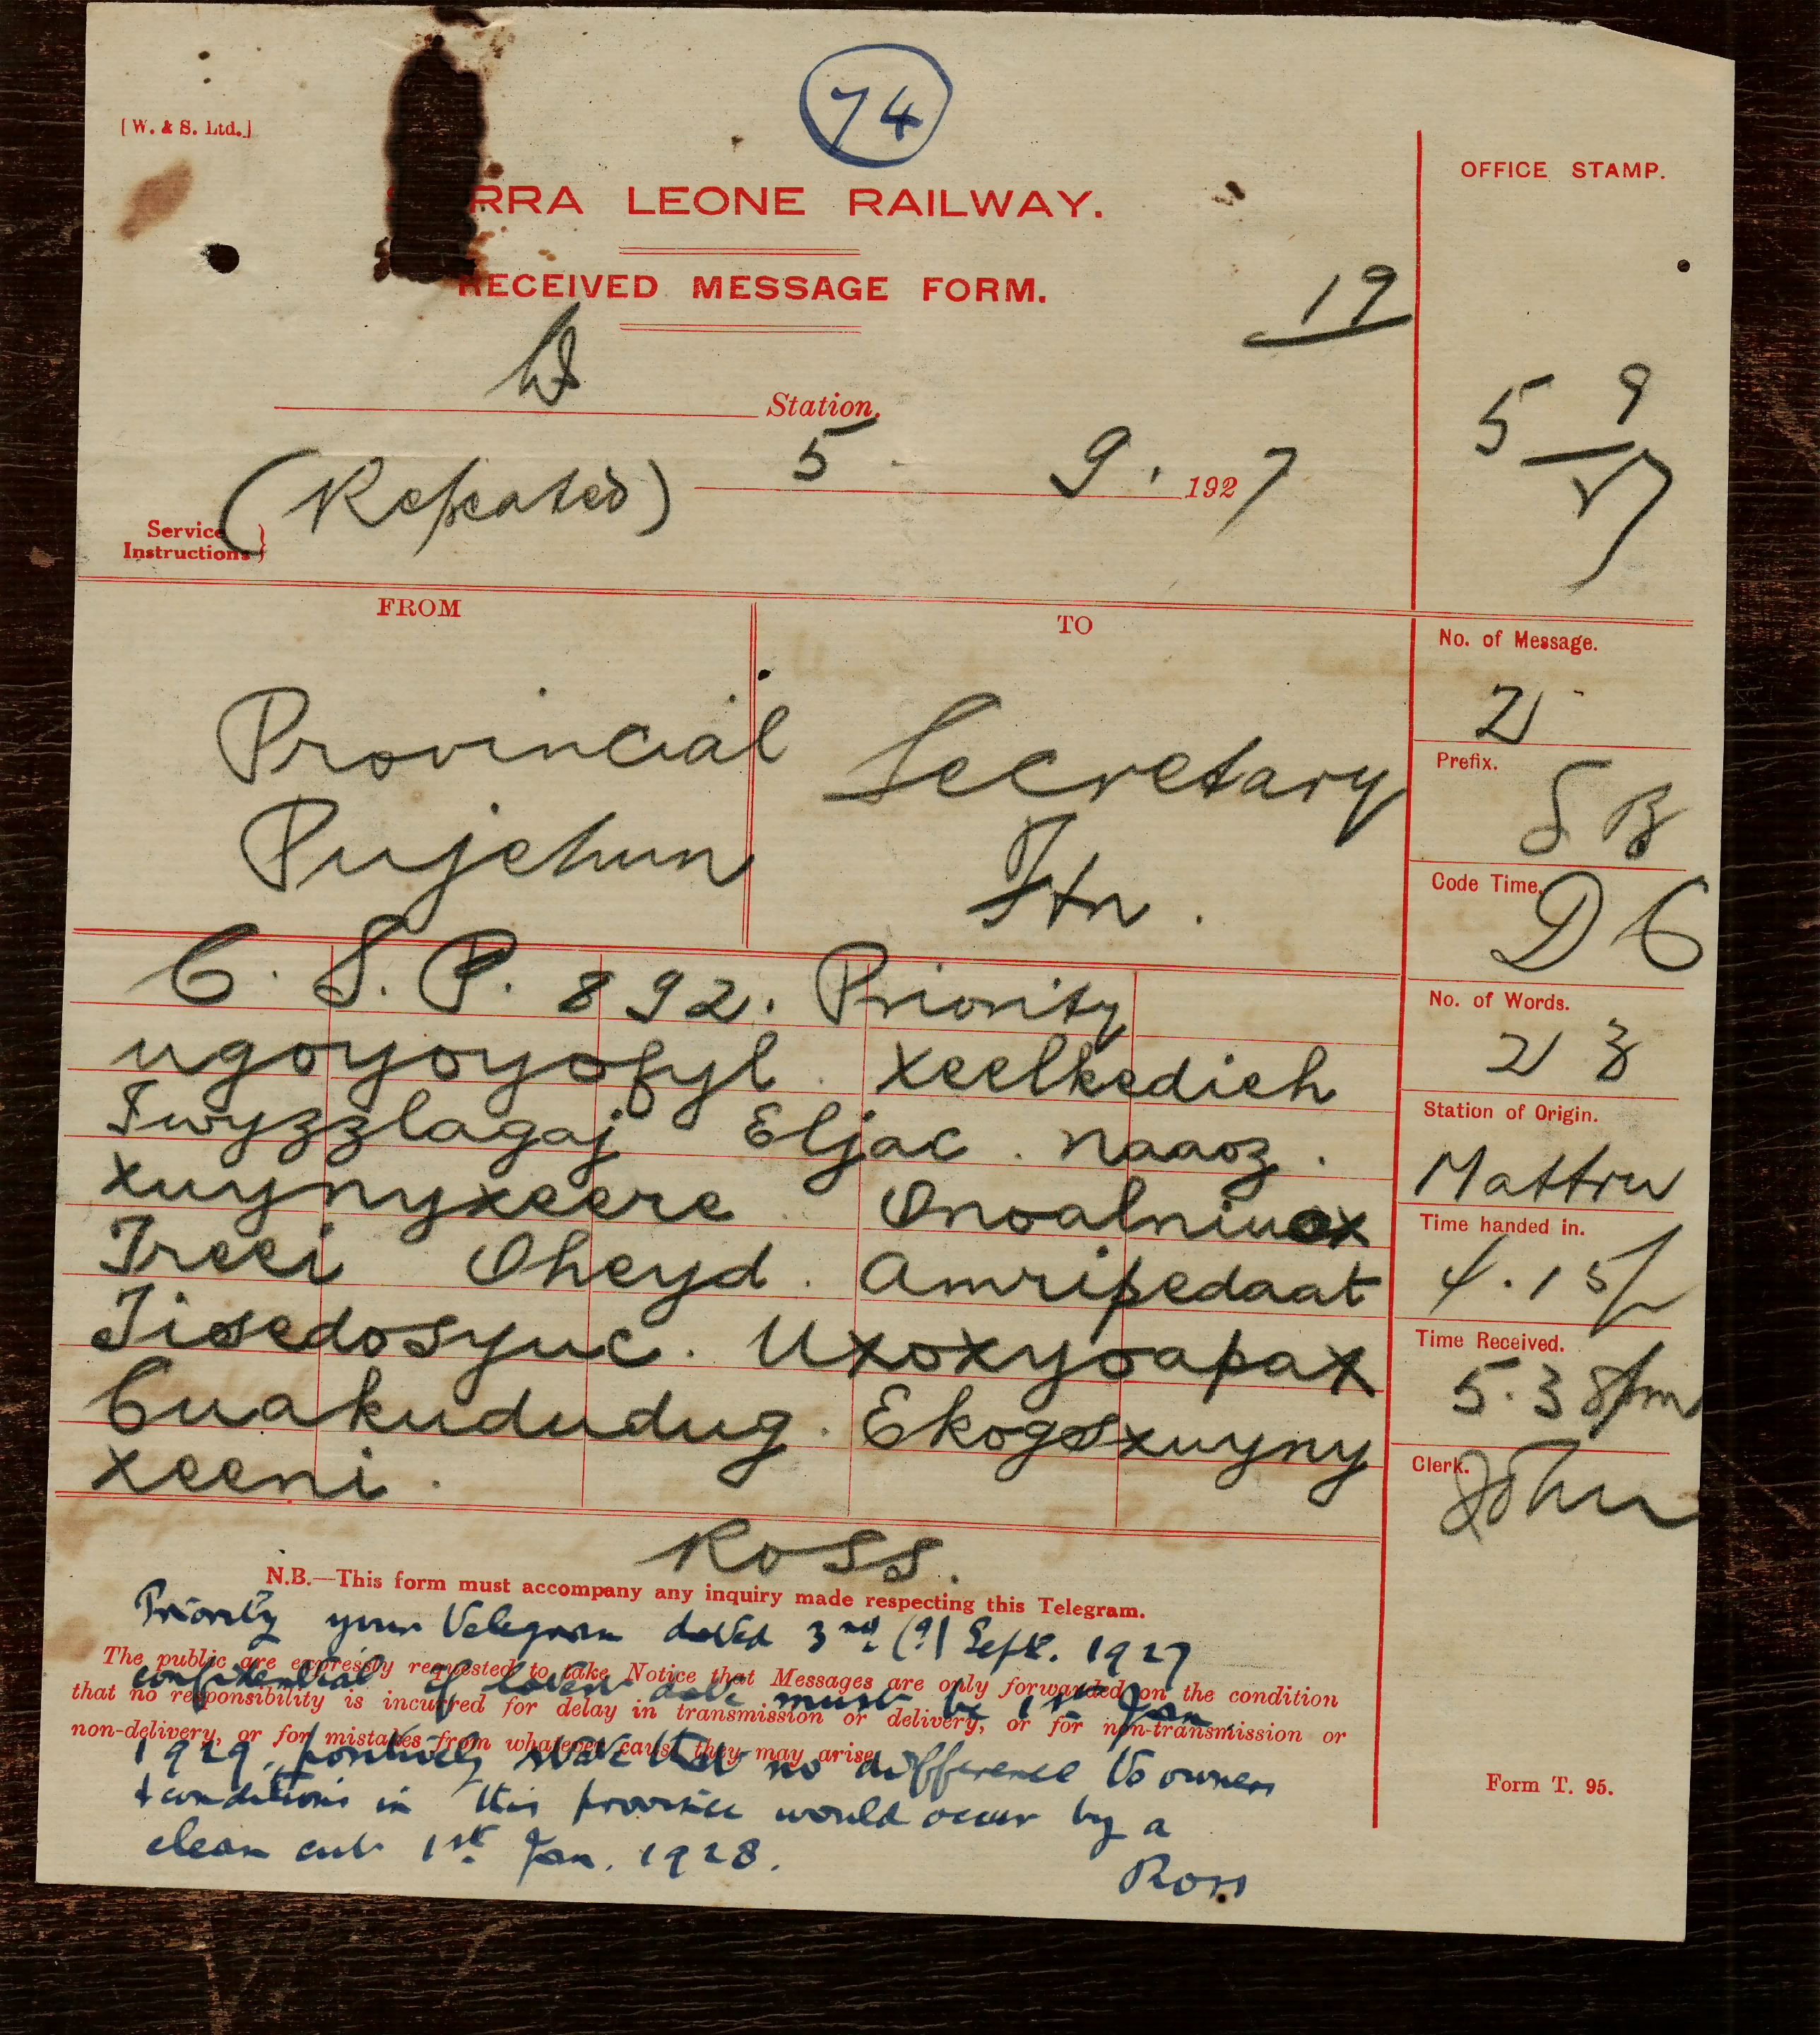 74
[W. & S. Ltd.]
OFFICE STAMP.
RRA LEONE RAILWAY.
RECEIVED MESSAGE FORM.
19
Station.
5 9
27
(Repeated) 5. 9. 1927
Service
Instructions }
FROM
TO
No. of Message.
2
Prefix.
SB
Provincial
Pujehun
Secretary
Ftn.
Code Time.
DC
C.S.P. 892. Priority
No. of Words.
23
ugoyoyofyl. xeelkedieh
Iwyzzlagaj Eljac. naaoz.
Station of Origin.
Mattru
xuynyxeere. Onoalniuox
Time handed in.
4.15p
Ireei Oheyd. amripedaat
Tisedosyuc. Uxoxyoapax
Time Received.
5.38pm
Cuakududug. Ekogosxuyny
xeeni.
Clerk.
John
Ross.
N.B.—This form must accompany any inquiry made respecting this Telegram.
Priority your telegram dated 3rd (?) Sept. 1927
The public are expressly requested to take Notice that Messages are only forwarded on the condition
confidential if latest date must be 1st Jan.
that no responsibility is incurred for delay in transmission or delivery, or for non-transmission or
non-delivery, or for mistakes from whatever cause they may arise.
1929. positively state that no difference to owners
& conditions in this province would occur by a
clean cut 1st Jan. 1928.
Ross
Form T. 95.